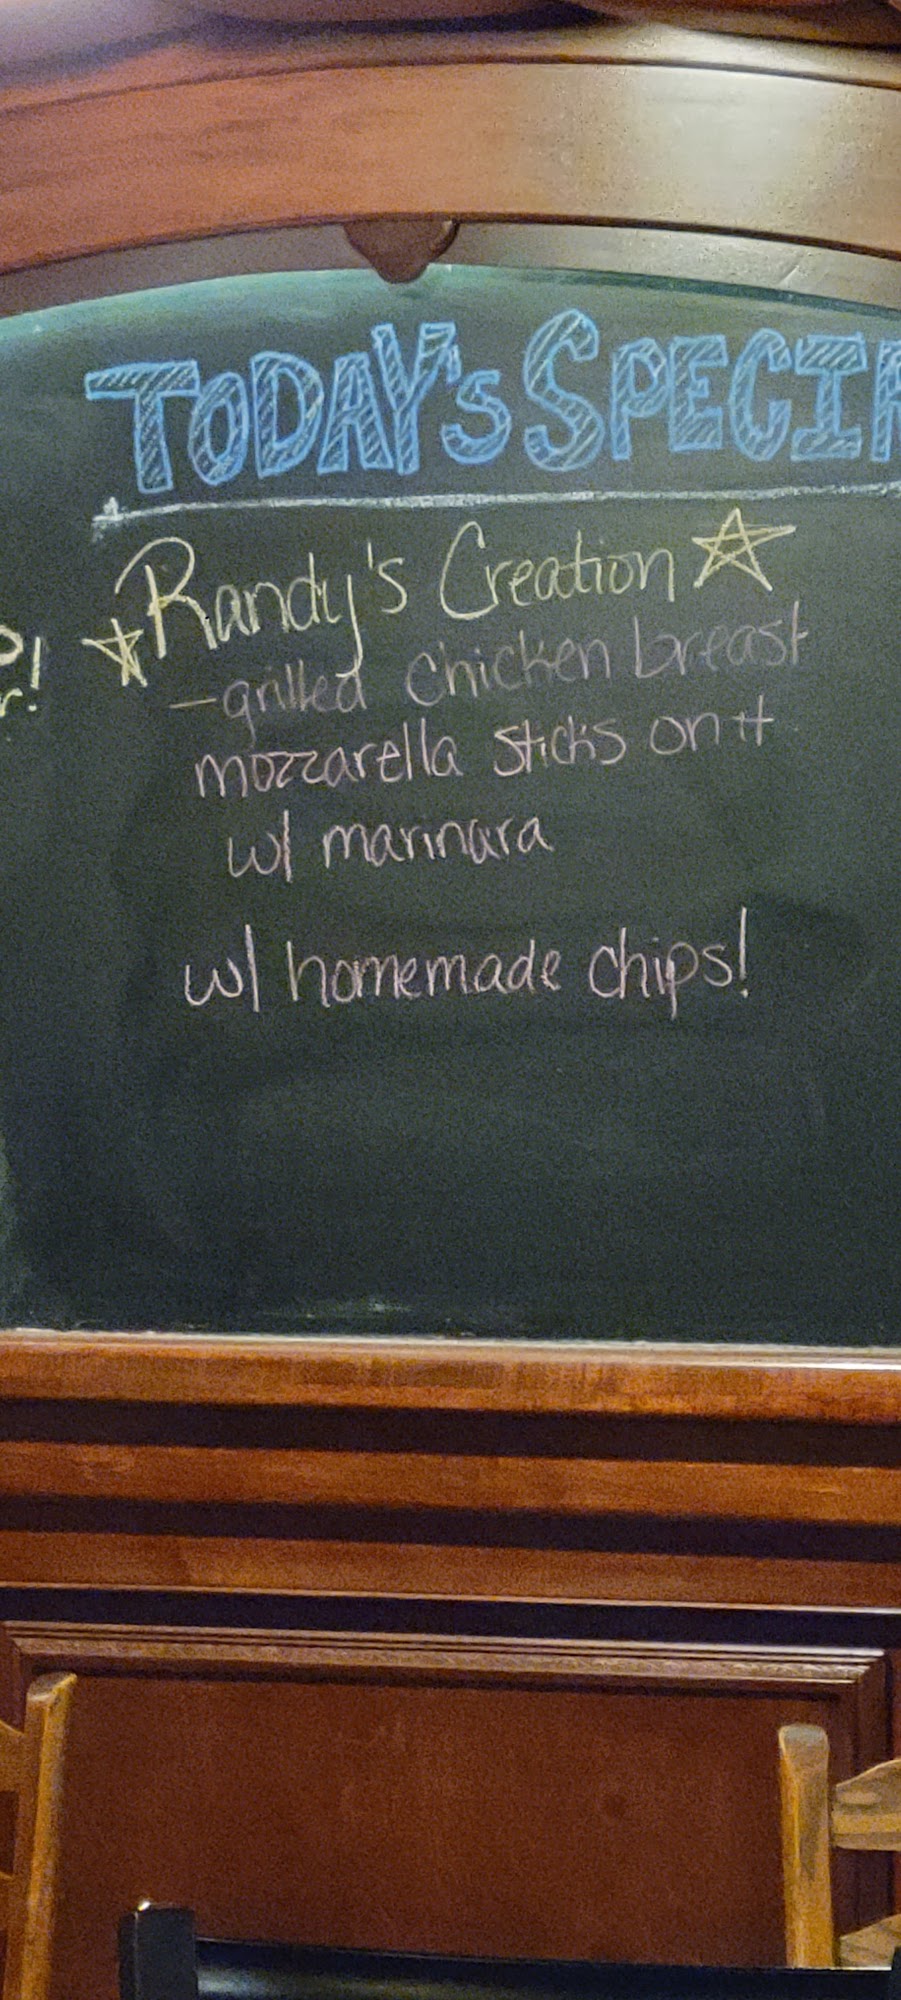 TODAY'S SPECIA
Randy's Creation
-grilled chicken breast
mozzarella sticks on it
w/ marinara
w/ homemade chips!